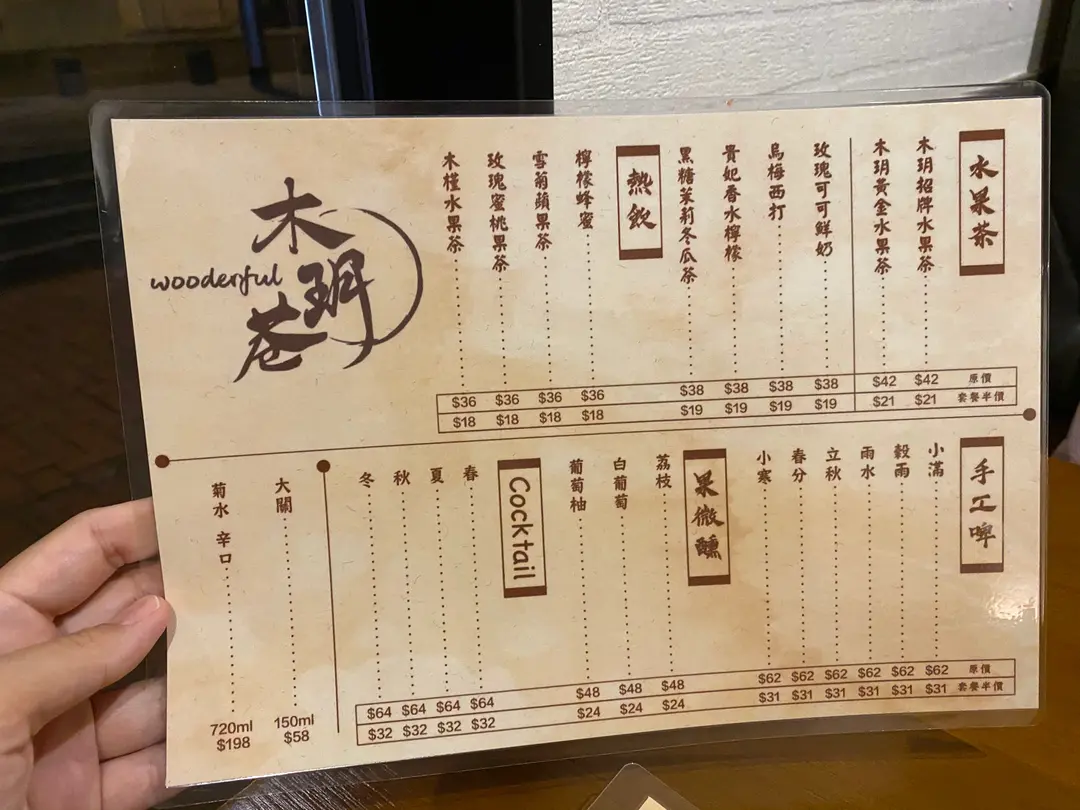 水果茶
原價
套餐半價
木玥招牌水果茶
$42
$21
木玥黃金水果茶
$42
$21
玫瑰可可鮮奶
$38
$19
烏梅西打
$38
$19
貴妃香水檸檬
$38
$19
黑糖茉莉冬瓜茶
$38
$19
熱飲
檸檬蜂蜜
$36
$18
雪菊蘋果茶
$36
$18
玫瑰蜜桃果茶
$36
$18
木槿水果茶
$36
$18
木玥巷
wooderful
手工啤
原價
套餐半價
小滿
$62
$31
穀雨
$62
$31
雨水
$62
$31
立秋
$62
$31
春分
$62
$31
小寒
$62
$31
果微醺
荔枝
$48
$24
白葡萄
$48
$24
葡萄柚
$48
$24
Cocktail
春
$64
$32
夏
$64
$32
秋
$64
$32
冬
$64
$32
大關
150ml
$58
菊水 辛口
720ml
$198